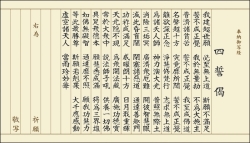 四誓偈
我建超世願 必至無上道 斯願不満足
誓不成正覚 我於無量劫 不為大施主
普済諸貧苦 誓不成正覚 我至成仏道
名声超十方 究竟靡所聞 誓不成正覚
離欲深正念 浄慧修梵行 志求無上道
為諸天人師 神力演大光 普照無際土
消除三垢冥 広済衆厄難 開彼智慧眼
滅此昏盲闇 閉塞諸悪道 通達善趣門
功祚成満足 威曜朗十方 日月戢重暉
天光隠不現 為衆開法蔵 広施功徳宝
常於大衆中 説法師子吼 供養一切仏
具足衆徳本 願慧悉成満 得為三界雄
如仏無碍智 通達靡不照 願我功慧力
等此最勝尊 斯願若剋果 大千応感動
虚空諸天人 当雨珍妙華
右為 祈願
敬写